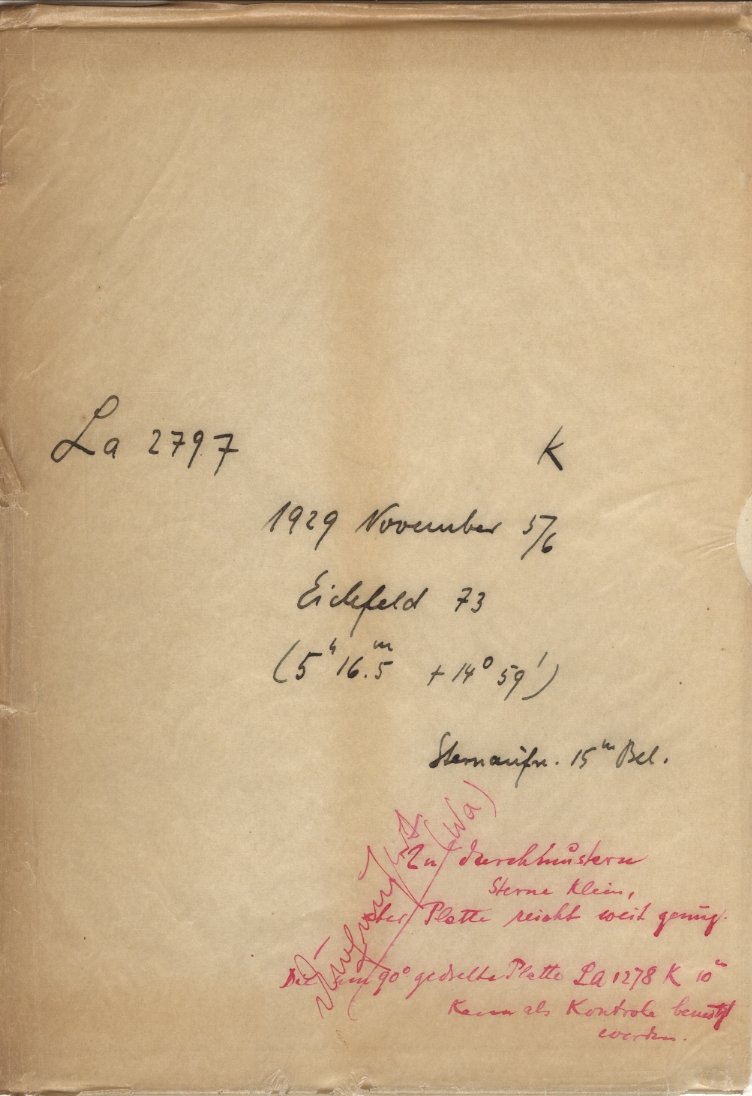 La 2797 K
1929 November 5/6
Eichfeld 73
(5ʰ 16.ᵐ5 + 14° 59')
Sternaufn. 15ᵐ Bel.
Zu durchmustern
Sterne klein,
aber Platte reicht weit genug.
Die um 90° gedrehte Platte La 1278 K 10ᵐ
kann als Kontrole benutzt
werden.
(Wa)